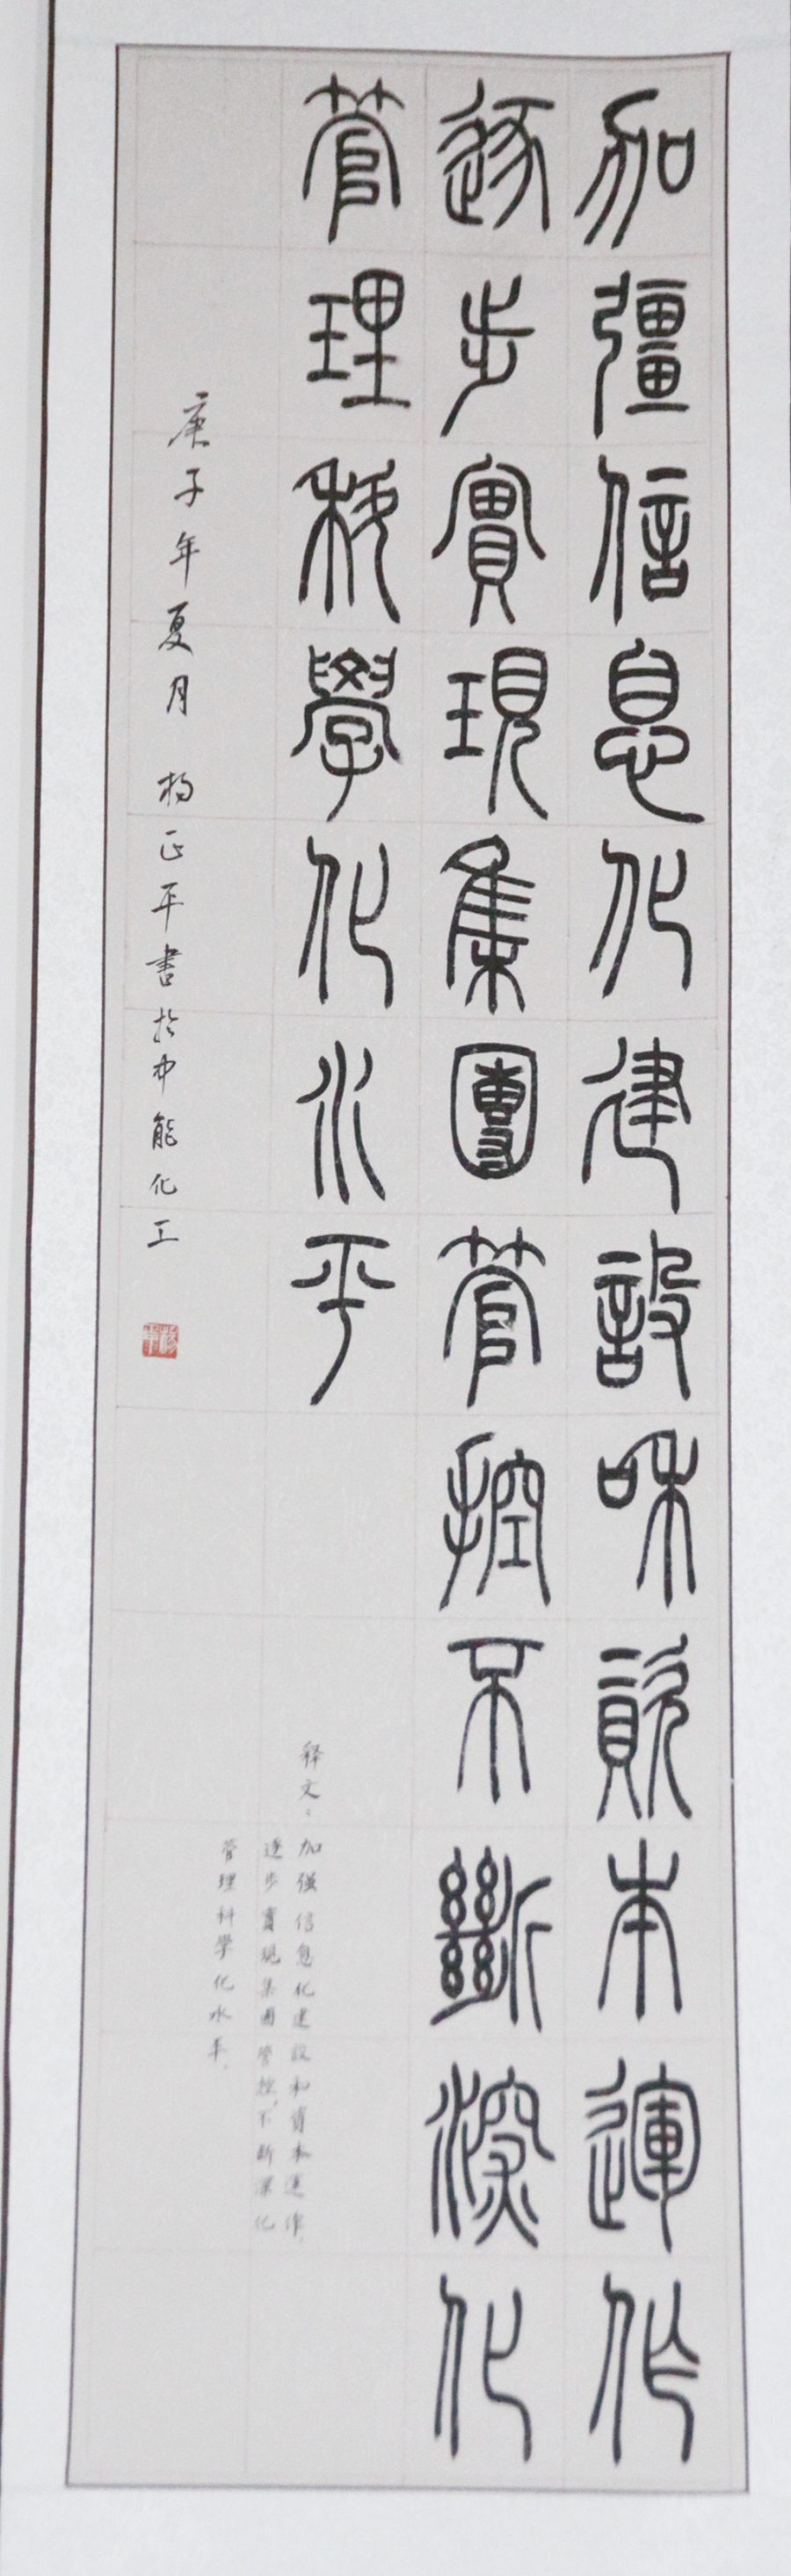 加彊信息化建設和資本運作
逐步實現集團管控不斷深化
管理科學化水平
庚子年夏月 楊正平書於中能化工
释文：加强信息化建設和資本運作，
逐步實現集團管控，不斷深化
管理科學化水平。